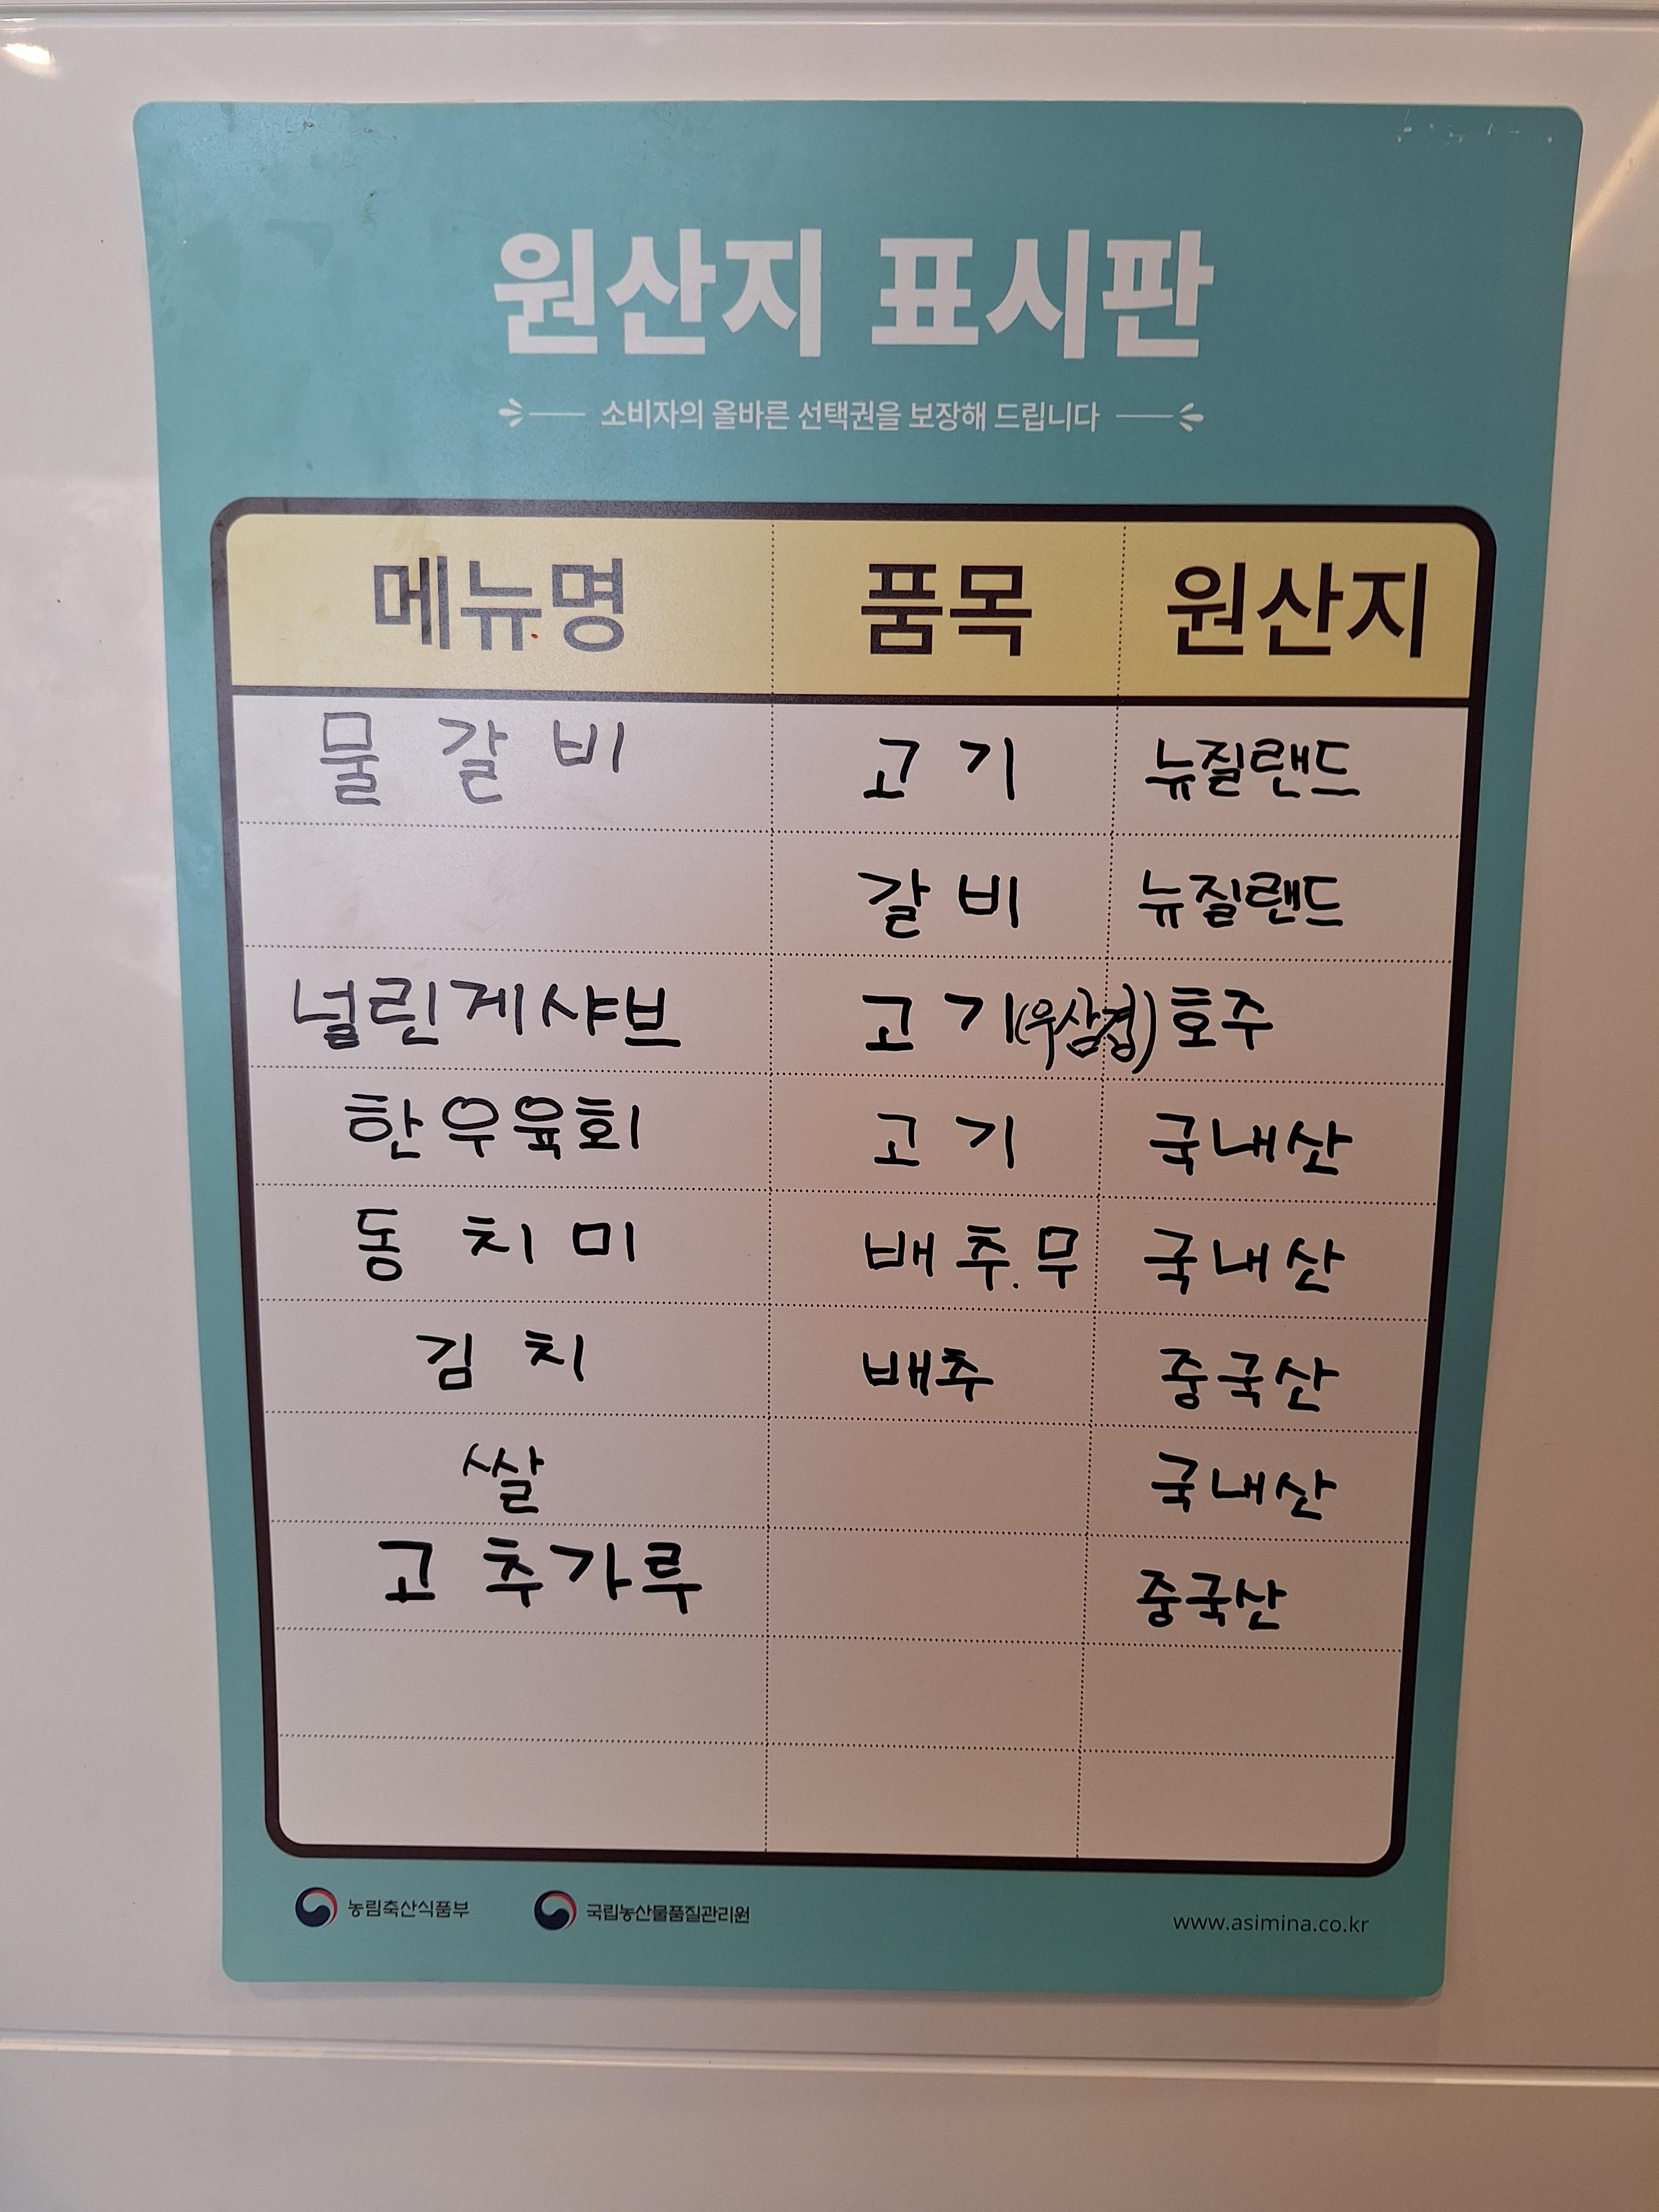 원산지 표시판
소비자의 올바른 선택권을 보장해 드립니다
메뉴명 품목 원산지
물갈비 고기 뉴질랜드
갈비 뉴질랜드
널린게샤브 고기(우삼겹) 호주
한우육회 고기 국내산
동치미 배추.무 국내산
김치 배추 중국산
쌀 국내산
고추가루 중국산
농림축산식품부 국립농산물품질관리원 www.asimina.co.kr